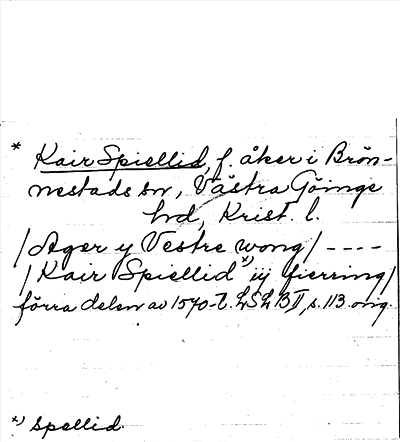 * Kair Spiellid, f. åker i Brön-
nestads sn, Västra Göinge
hd, Krist. l.
/Ager y Vestre wong/ ----
/Kair Spiellid *) iij fierring/
förra delen av 1570-t. LSLB II, s. 113 orig.
*) Spellid